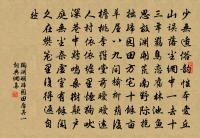 少無適俗韻性本愛丘
山誤落塵網中一去十
三年羈鳥戀舊林池魚
思故淵開荒南野際守
拙歸園田方宅十餘畝
草屋八九間榆柳蔭後
簷桃李羅堂前曖曖遠
人村依依墟里煙狗吠
深巷中雞鳴桑樹顛戶
庭無塵雜虛室有餘閒
久在樊籠裏復得返自
然
陶淵明歸園田居其一